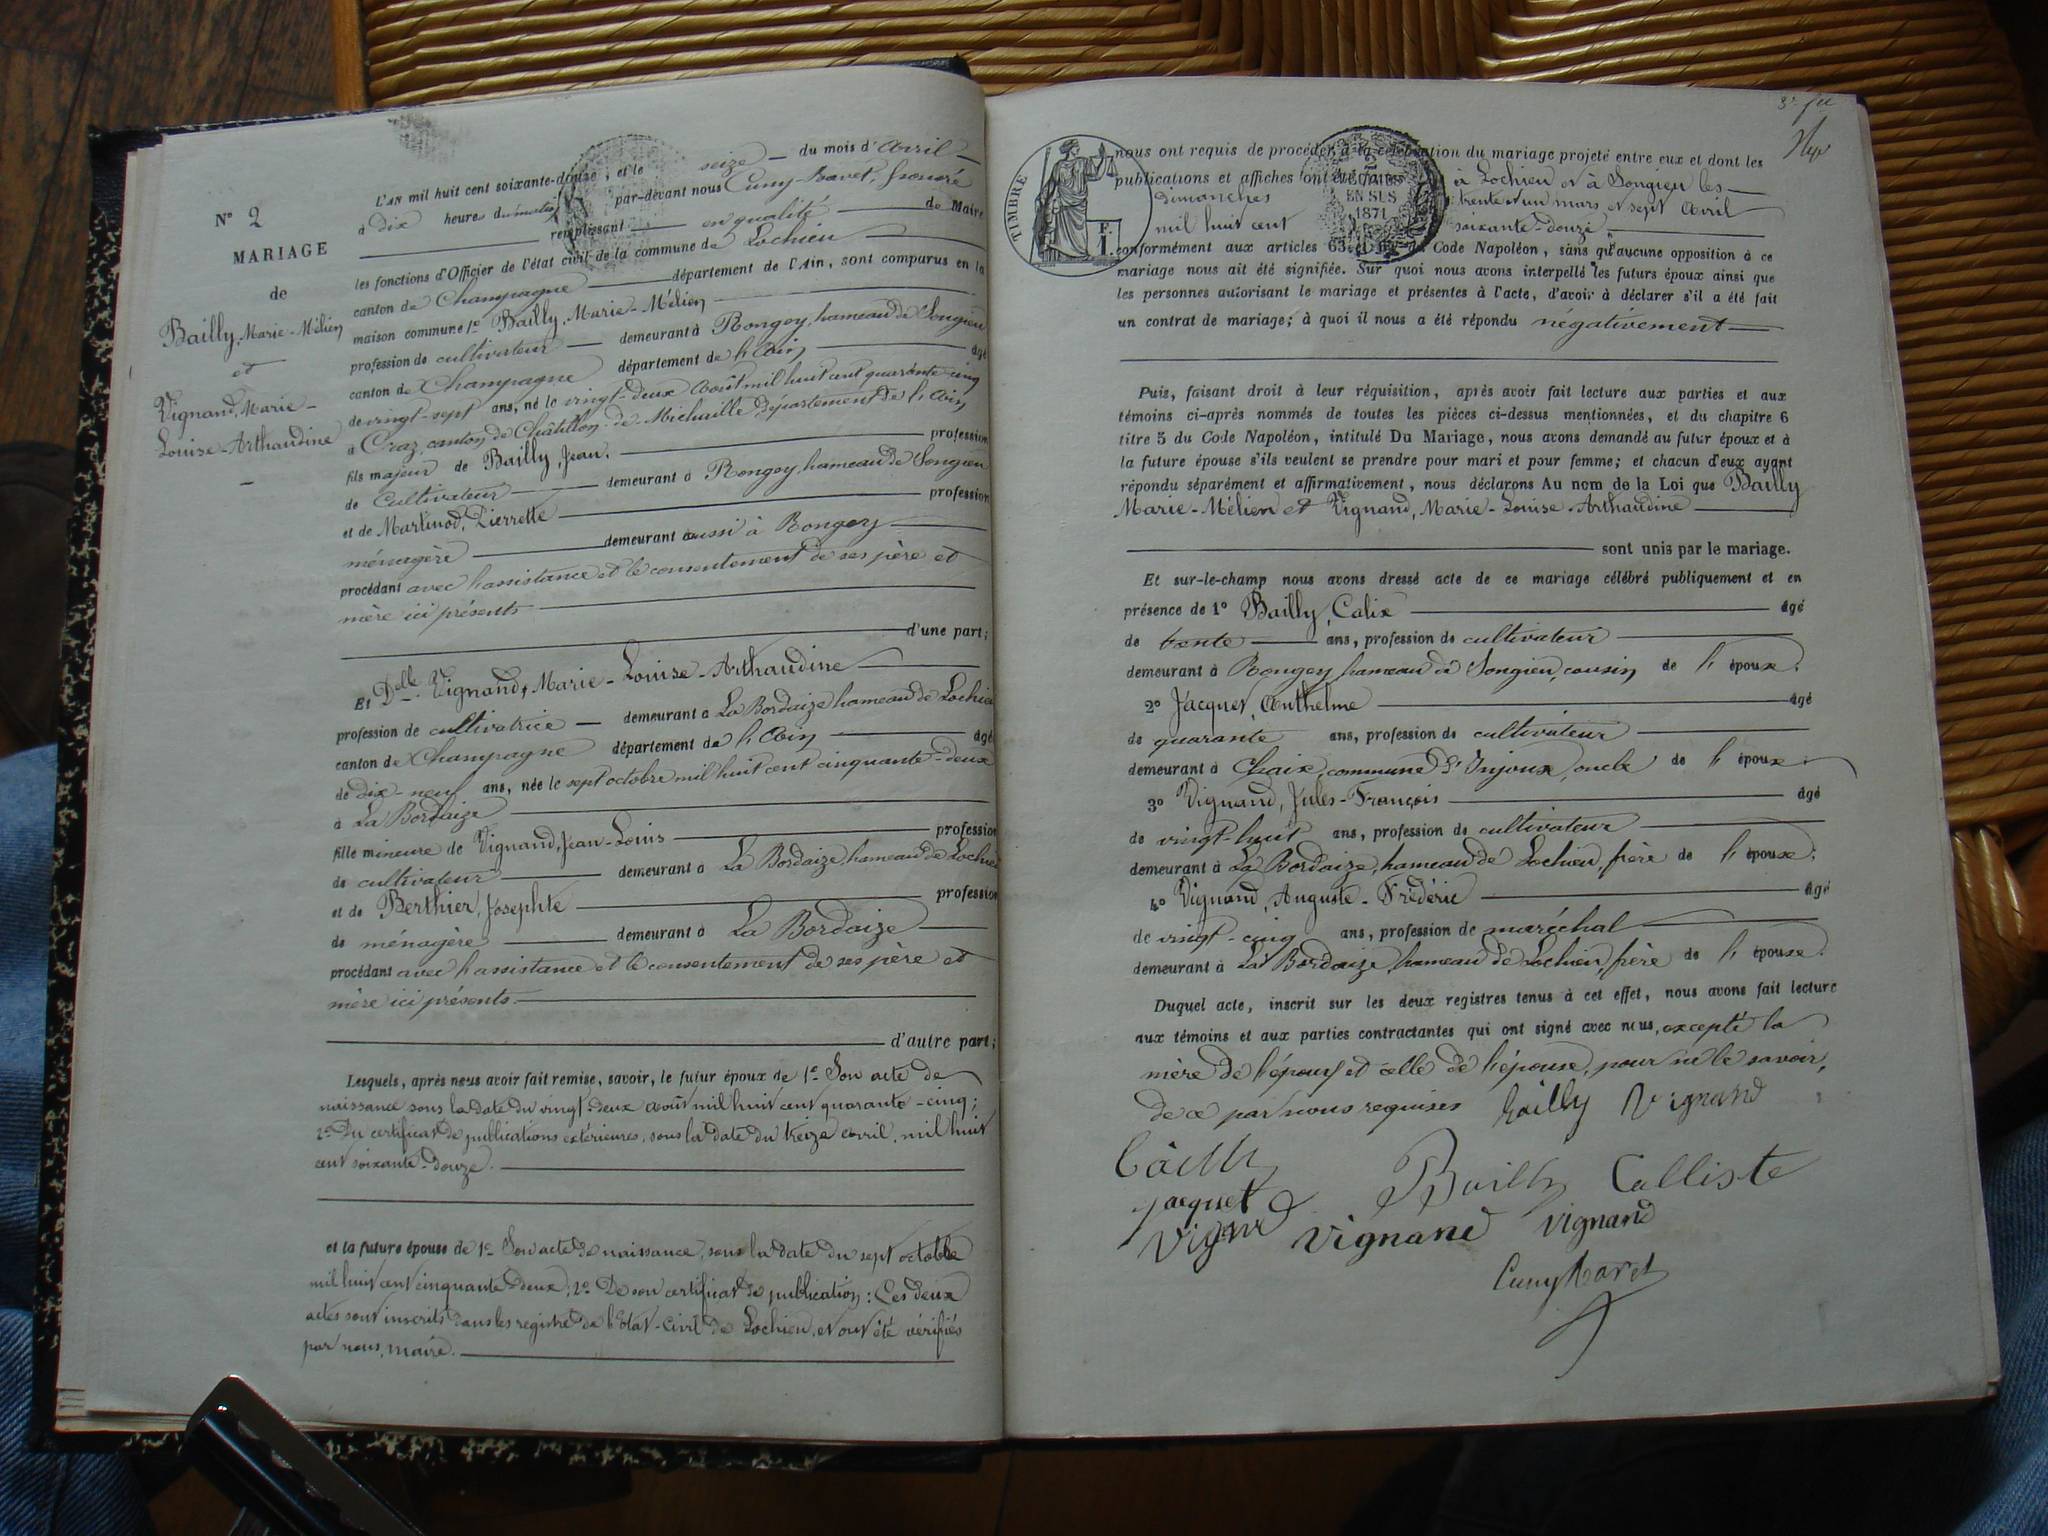 N° 2
MARIAGE
de
Bailly, Marie-Mélien
et
Vignand, Marie-
Louise-Arthaudine
L'AN mil huit cent soixante-douze, et le seize du mois d'Avril
à dix heures du matin par-devant nous Cuny-Ravet, honoré
remplissant en qualité de Maire
les fonctions d'Officier de l'état civil de la commune de Lochieu
canton de Champagne département de l'Ain, sont comparus en la
maison commune 1° Bailly, Marie-Mélien
profession de cultivateur demeurant à Rongey, hameau de Songieu
canton de Champagne département de l'Ain âgé
de vingt-sept ans, né le vingt-deux Août mil huit cent quarante-cinq
à Craz, canton de Châtillon-de-Michaille, département de l'Ain
fils majeur de Bailly, Jean, profession
de Cultivateur demeurant à Rongey, hameau de Songieu
et de Martinod, Pierrette profession
ménagère demeurant aussi à Rongey
procédant avec l'assistance et le consentement de ses père et
mère ici présents
d'une part;
Et Delle Vignand, Marie-Louise-Arthaudine
profession de cultivatrice demeurant à La Bordaize hameau de Lochieu
canton de Champagne département de l'Ain âgé
de dix-neuf ans, née le sept octobre mil huit cent cinquante-deux
à La Bordaize
fille mineure de Vignand, Jean-Louis profession
de cultivateur demeurant à La Bordaize, hameau de Lochieu
et de Berthier, Josephte profession
de ménagère demeurant à La Bordaize
procédant avec l'assistance et le consentement de ses père et
mère ici présents.
d'autre part;
Lesquels, après nous avoir fait remise, savoir, le futur époux de 1° Son acte de
naissance sous la date du vingt-deux août mil huit cent quarante-cinq;
2° Du certificat de publications extérieures, sous la date du treize avril, mil huit
cent soixante-douze.
et la future épouse de 1° Son acte de naissance, sous la date du sept octobre
mil huit cent cinquante-deux; 2° De son certificat de publication: Ces deux
actes sont inscrits dans les registre de l'Etat-Civil de Lochieu, et ont été vérifiés
par nous, maire.
TIMBRE
F.
1.
2
DÉCIMES
EN SUS
1871
nous ont requis de procéder à la célébration du mariage projeté entre eux et dont les
publications et affiches ont été faites à Lochieu et à Songieu les
dimanches trente et un mars et sept Avril
mil huit cent soixante-douze
conformément aux articles 63 et du Code Napoléon, sans qu'aucune opposition à ce
mariage nous ait été signifiée. Sur quoi nous avons interpellé les futurs époux ainsi que
les personnes autorisant le mariage et présentes à l'acte, d'avoir à déclarer s'il a été fait
un contrat de mariage; à quoi il nous a été répondu négativement
Puis, faisant droit à leur réquisition, après avoir fait lecture aux parties et aux
témoins ci-après nommés de toutes les pièces ci-dessus mentionnées, et du chapitre 6
titre 5 du Code Napoléon, intitulé Du Mariage, nous avons demandé au futur époux et à
la future épouse s'ils veulent se prendre pour mari et pour femme; et chacun d'eux ayant
répondu séparément et affirmativement, nous déclarons Au nom de la Loi que Bailly
Marie-Mélien et Vignand, Marie-Louise-Arthaudine
sont unis par le mariage.
Et sur-le-champ nous avons dressé acte de ce mariage célébré publiquement et en
présence de 1° Bailly, Calix âgé
de trente ans, profession de cultivateur
demeurant à Rongey hameau de Songieu, cousin de l'époux.
2° Jacquet, Anthelme âgé
de quarante ans, profession de cultivateur
demeurant à Chaix, commune d'Injoux, oncle de l'époux.
3° Vignand, Jules-François âgé
de vingt-huit ans, profession de cultivateur
demeurant à La Bordaize, hameau de Lochieu, frère de l'épouse.
4° Vignand, Auguste-Frédéric âgé
de vingt-cinq ans, profession de maréchal
demeurant à La Bordaize, hameau de Lochieu, frère de l'épouse.
Duquel acte, inscrit sur les deux registres tenus à cet effet, nous avons fait lecture
aux témoins et aux parties contractantes qui ont signé avec nous, excepté la
mère de l'époux et celle de l'épouse, pour ne le savoir,
de ce par nous requises bailly Vignand
Bailly Calliste
jacquet
Vignand Vignand Vignand
Cuny Ravet